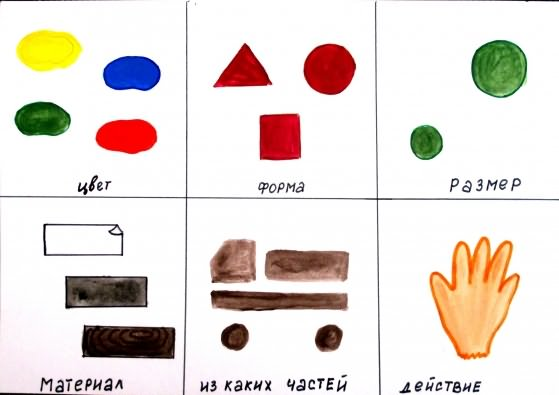 цвет
форма
размер
материал
из каких частей
действие